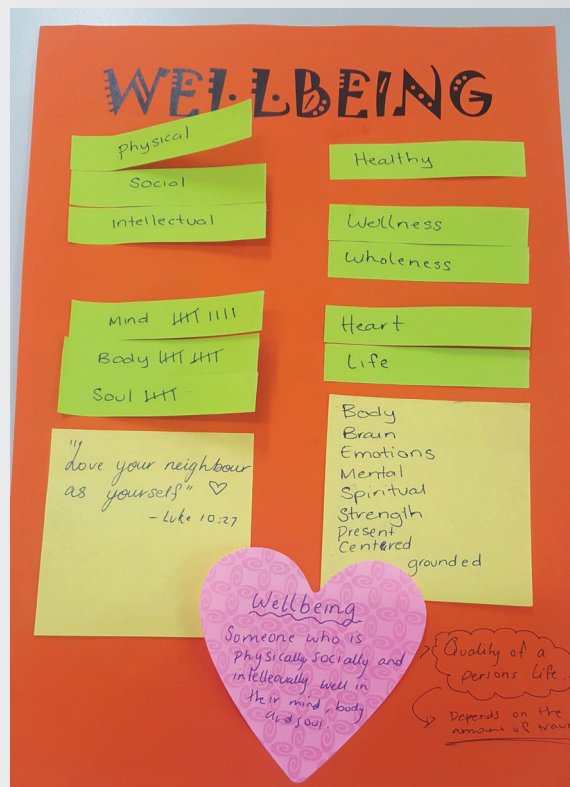 WELLBEING
Physical
Social
Intellectual
Mind 𝍸 IIII
Body 𝍸 𝍸
Soul 𝍸
"Love your neighbour
as yourself" ♡
- Luke 10:27
Healthy
Wellness
Wholeness
Heart
Life
Body
Brain
Emotions
Mental
Spiritual
Strength
Present
Centered
grounded
Wellbeing
Someone who is
physically socially and
intellecually well in
their mind, body
and soul.
Quality of a
persons Life.
Depends on the
amount of